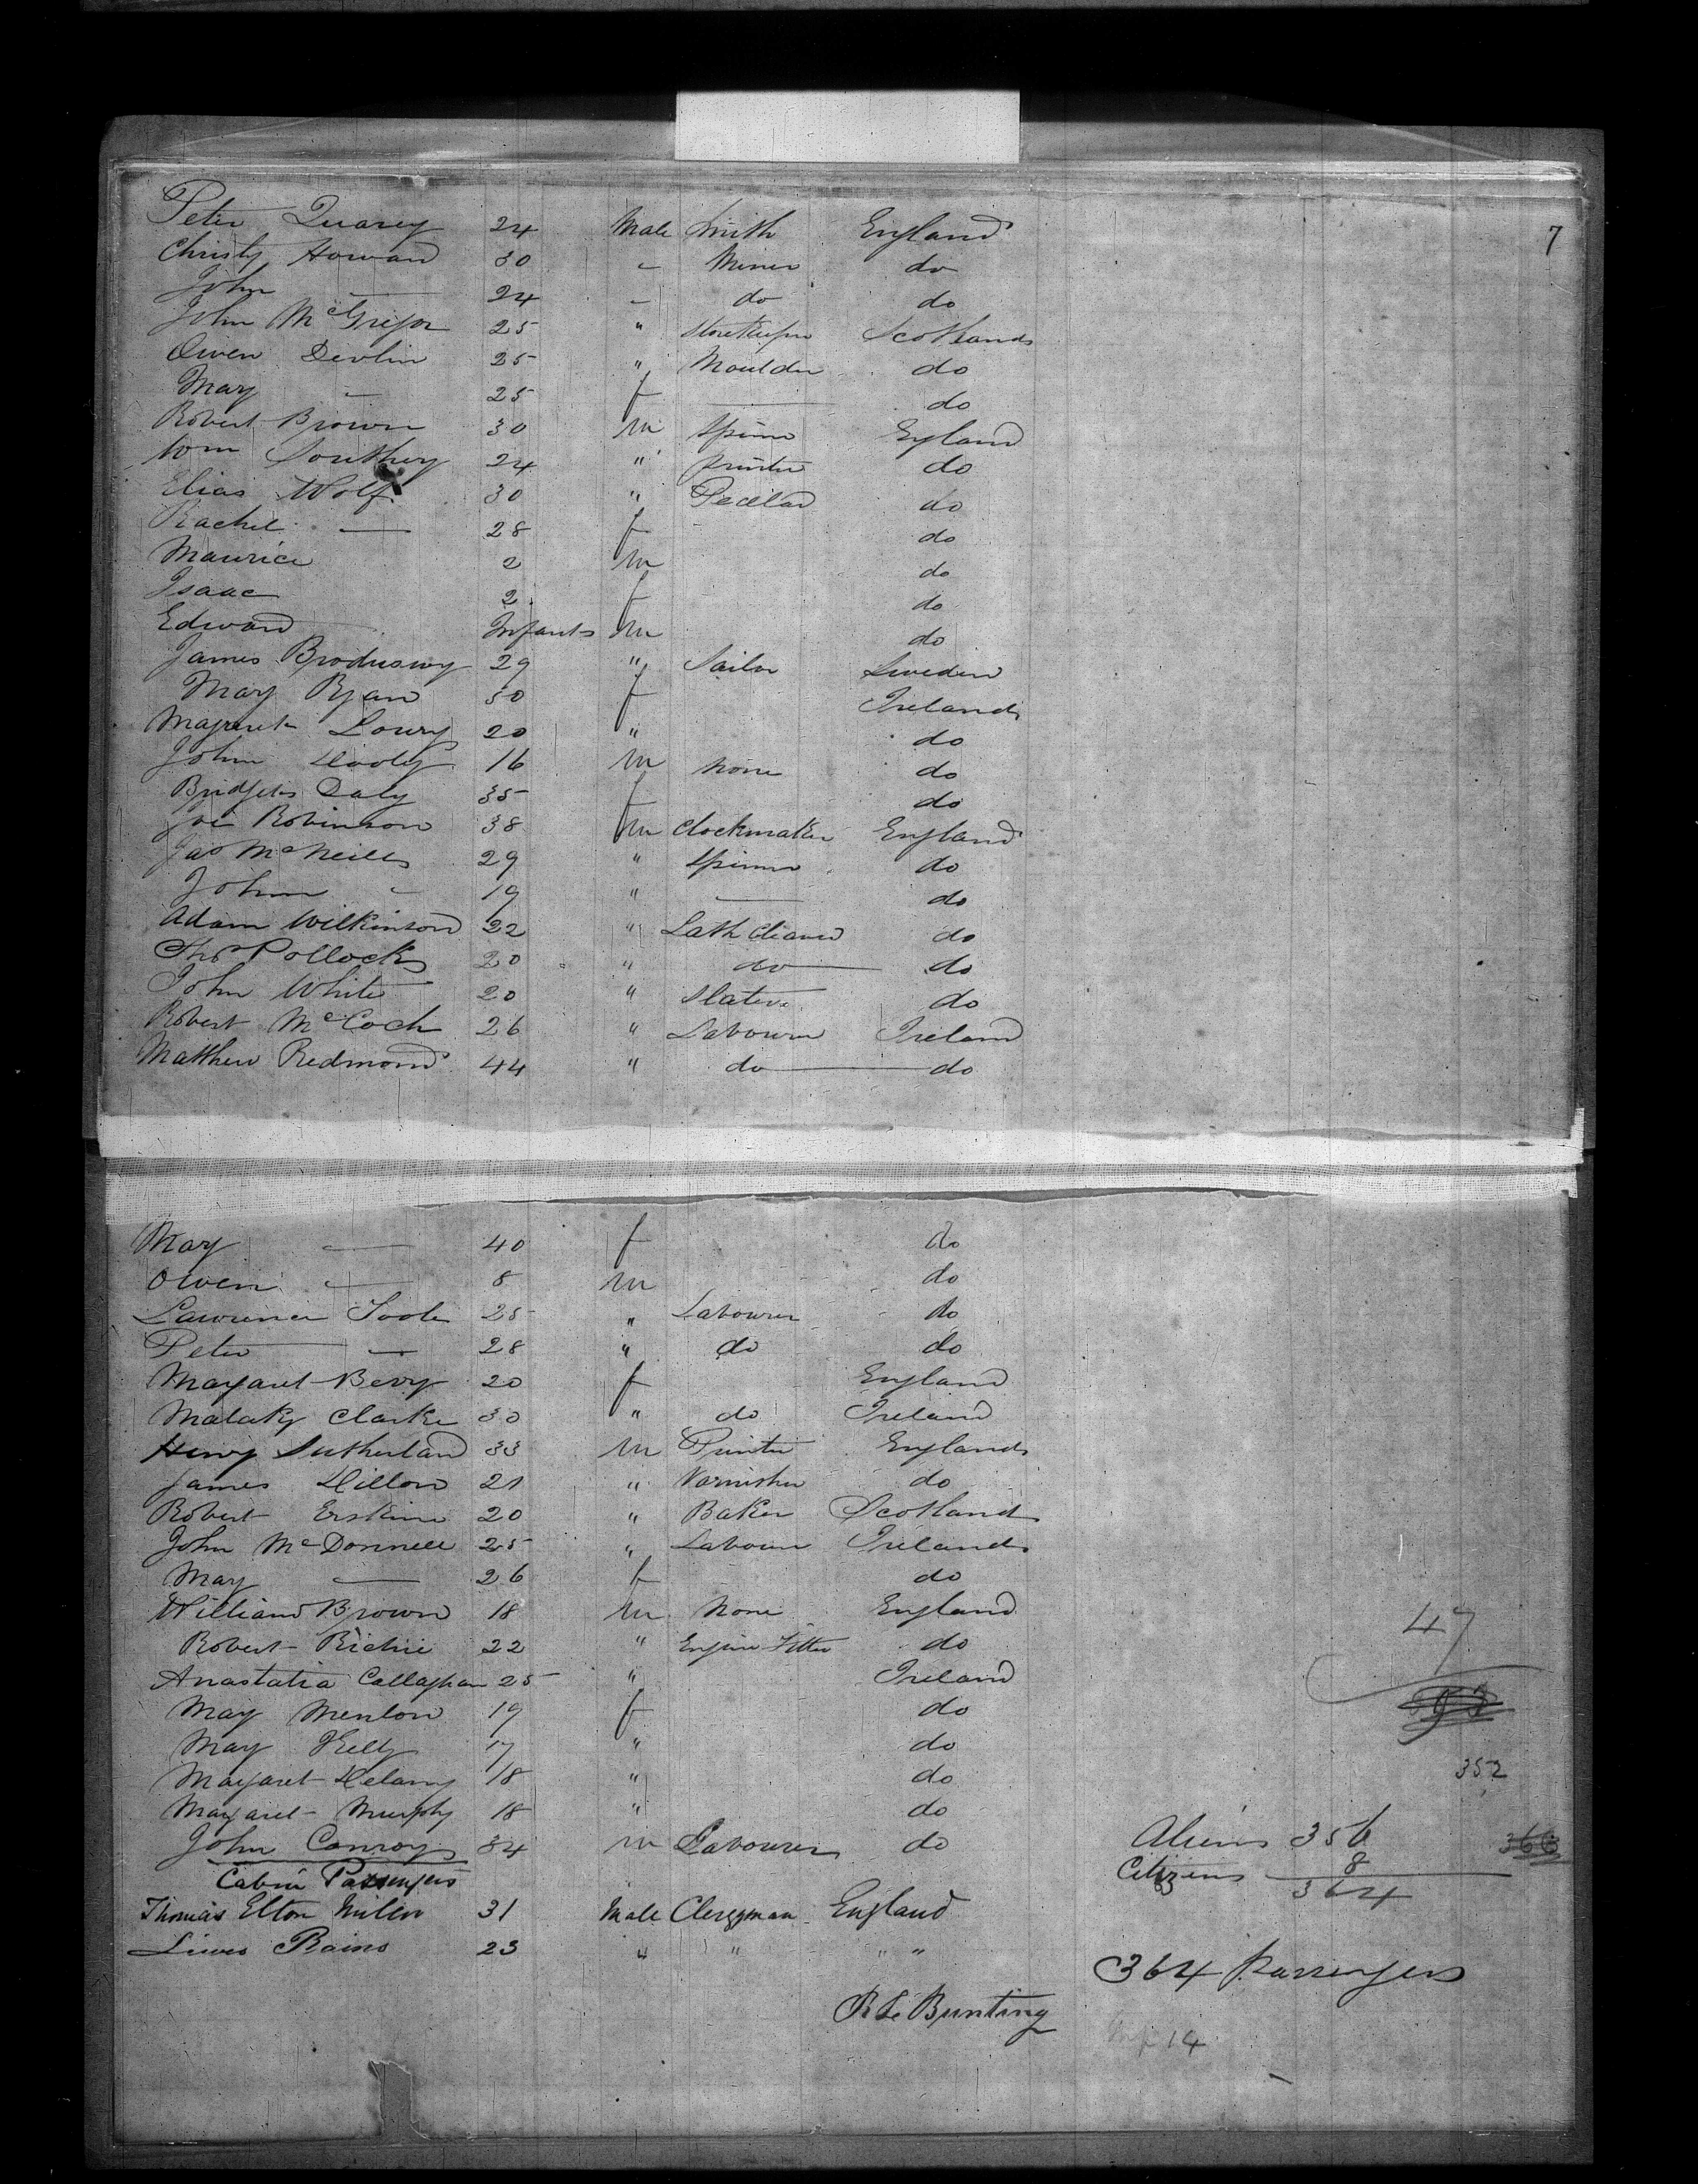 7
Peter Quarey 24 Male Smith England
Christy Howard 30 " Miner do
John — 24 " do do
John McGregor 25 " Storekeeper Scotland
Owen Devlin 25 " Moulder do
Mary — 25 f — do
Robert Brown 30 m Spinner England
Wm Southey 24 " printer do
Elias Wolf 30 " Pedlar do
Rachel — 28 f do
Maurice 2 m do
Isaac 2 f do
Edward Infants m do
James 29 " Sailor Sweden
Mary Ryan 30 f Ireland
Margaret Lowry 20 " do
John Hooly 16 m None do
Bridget Daly 35 f do
Joe Robinson 38 m Clockmaker England
Jas McNeill 29 " Spinner do
John " 19 " — do
Adam Wilkinson 22 " Lath Cleaver do
Thos Pollock 20 " do do
John White 20 " Slater do
Robert McCoch 26 " Labourer Ireland
Matthew Redmond 44 " do do
Mary — 40 f do
Owen — 8 m do
Lawrence Toole 25 " Labourer do
Peter — 28 " do do
Margaret Bevy 20 f England
Malaky Clarke 30 " do Ireland
Henry Sutherland 33 m Printer England
James Dillon 21 " Varnisher do
Robert Erskine 20 " Baker Scotland
John McDonnell 25 " Labourer Ireland
Mary — 26 f do
William Brown 18 m None England
47
Robert Richie 22 " Engine Fitter do
Anastatia Callaghan 25 " Ireland
Mary Menlon 19 f do
Mary Kelly 17 " do
352
Margaret Delany 18 " do
Margaret Murphy 18 " do
John Conroy 34 m Labourer do
Aliens 356
366
Cabin Passengers
Citizens 8
364
Thomas Elton Miler 31 Male Clergyman England
Lewes Rains 23 " " " "
364 Passengers
R L Bunting
Inf 14